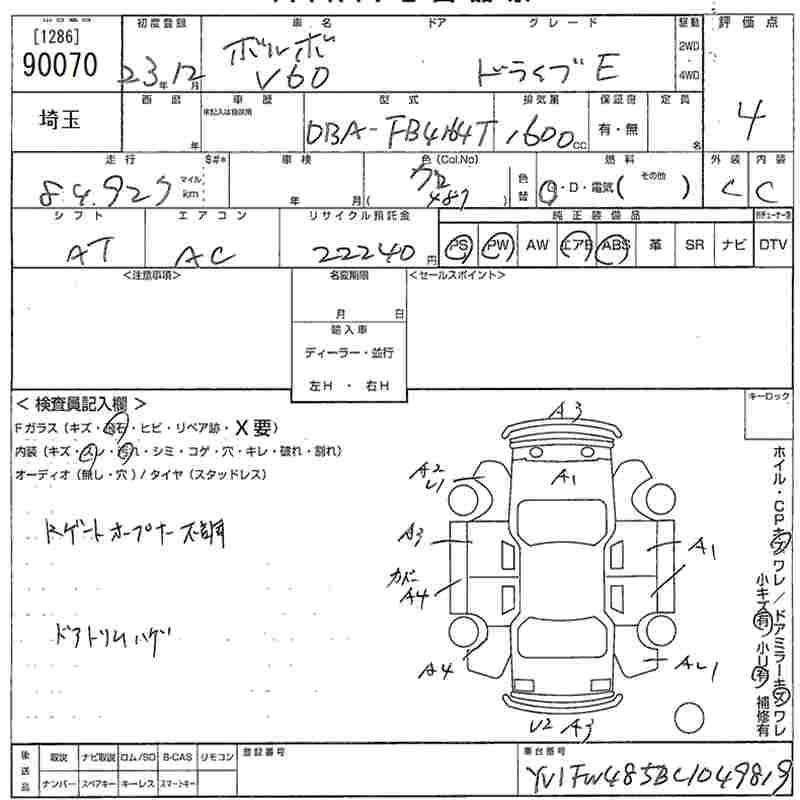 [1286]
90070
初度登録
23年12月
車名
ボルボ
V60
ドア
グレード
ドライブE
駆動
2WD
4WD
評価点
4
埼玉
西暦
年
車歴
未記入は自家用
型式
DBA-FB4164T
排気量
1600cc
保証書
有・無
定員
名
走行
84,927
マイル
km
S#*
車検
年 月
色(Col.No)
クロ
487
色替
燃料
G・D・電気( その他 )
外装
C
内装
C
シフト
AT
エアコン
AC
リサイクル預託金
22240円
純正装備品
PS PW AW エアB ABS 革 SR ナビ
DTV
<注意事項>
名変期限
月 日
輸入車
ディーラー・並行
左H ・ 右H
<セールスポイント>
<検査員記入欄>
Fガラス(キズ・飛石・ヒビ・リペア跡・X要)
内装(キズ・スレ・汚れ・シミ・コゲ・穴・キレ・破れ・割れ)
オーディオ(無し・穴)/タイヤ(スタッドレス)
Rゲートオープナー不調
ドアトリムハゲ
キーロック
A3
A1
A2
U1
A3
A1
カバー
A4
A4
AU1
U2 A3
ホイル・CPキズワレ/ドアミラーキズワレ
小キズ有 小リ有 補修有
後送品
取説 ナビ取説 ロム/SD B-CAS リモコン
ナンバー スペアキー キーレス スマートキー
登録番号
車台番号
YV1FW485BC1049819